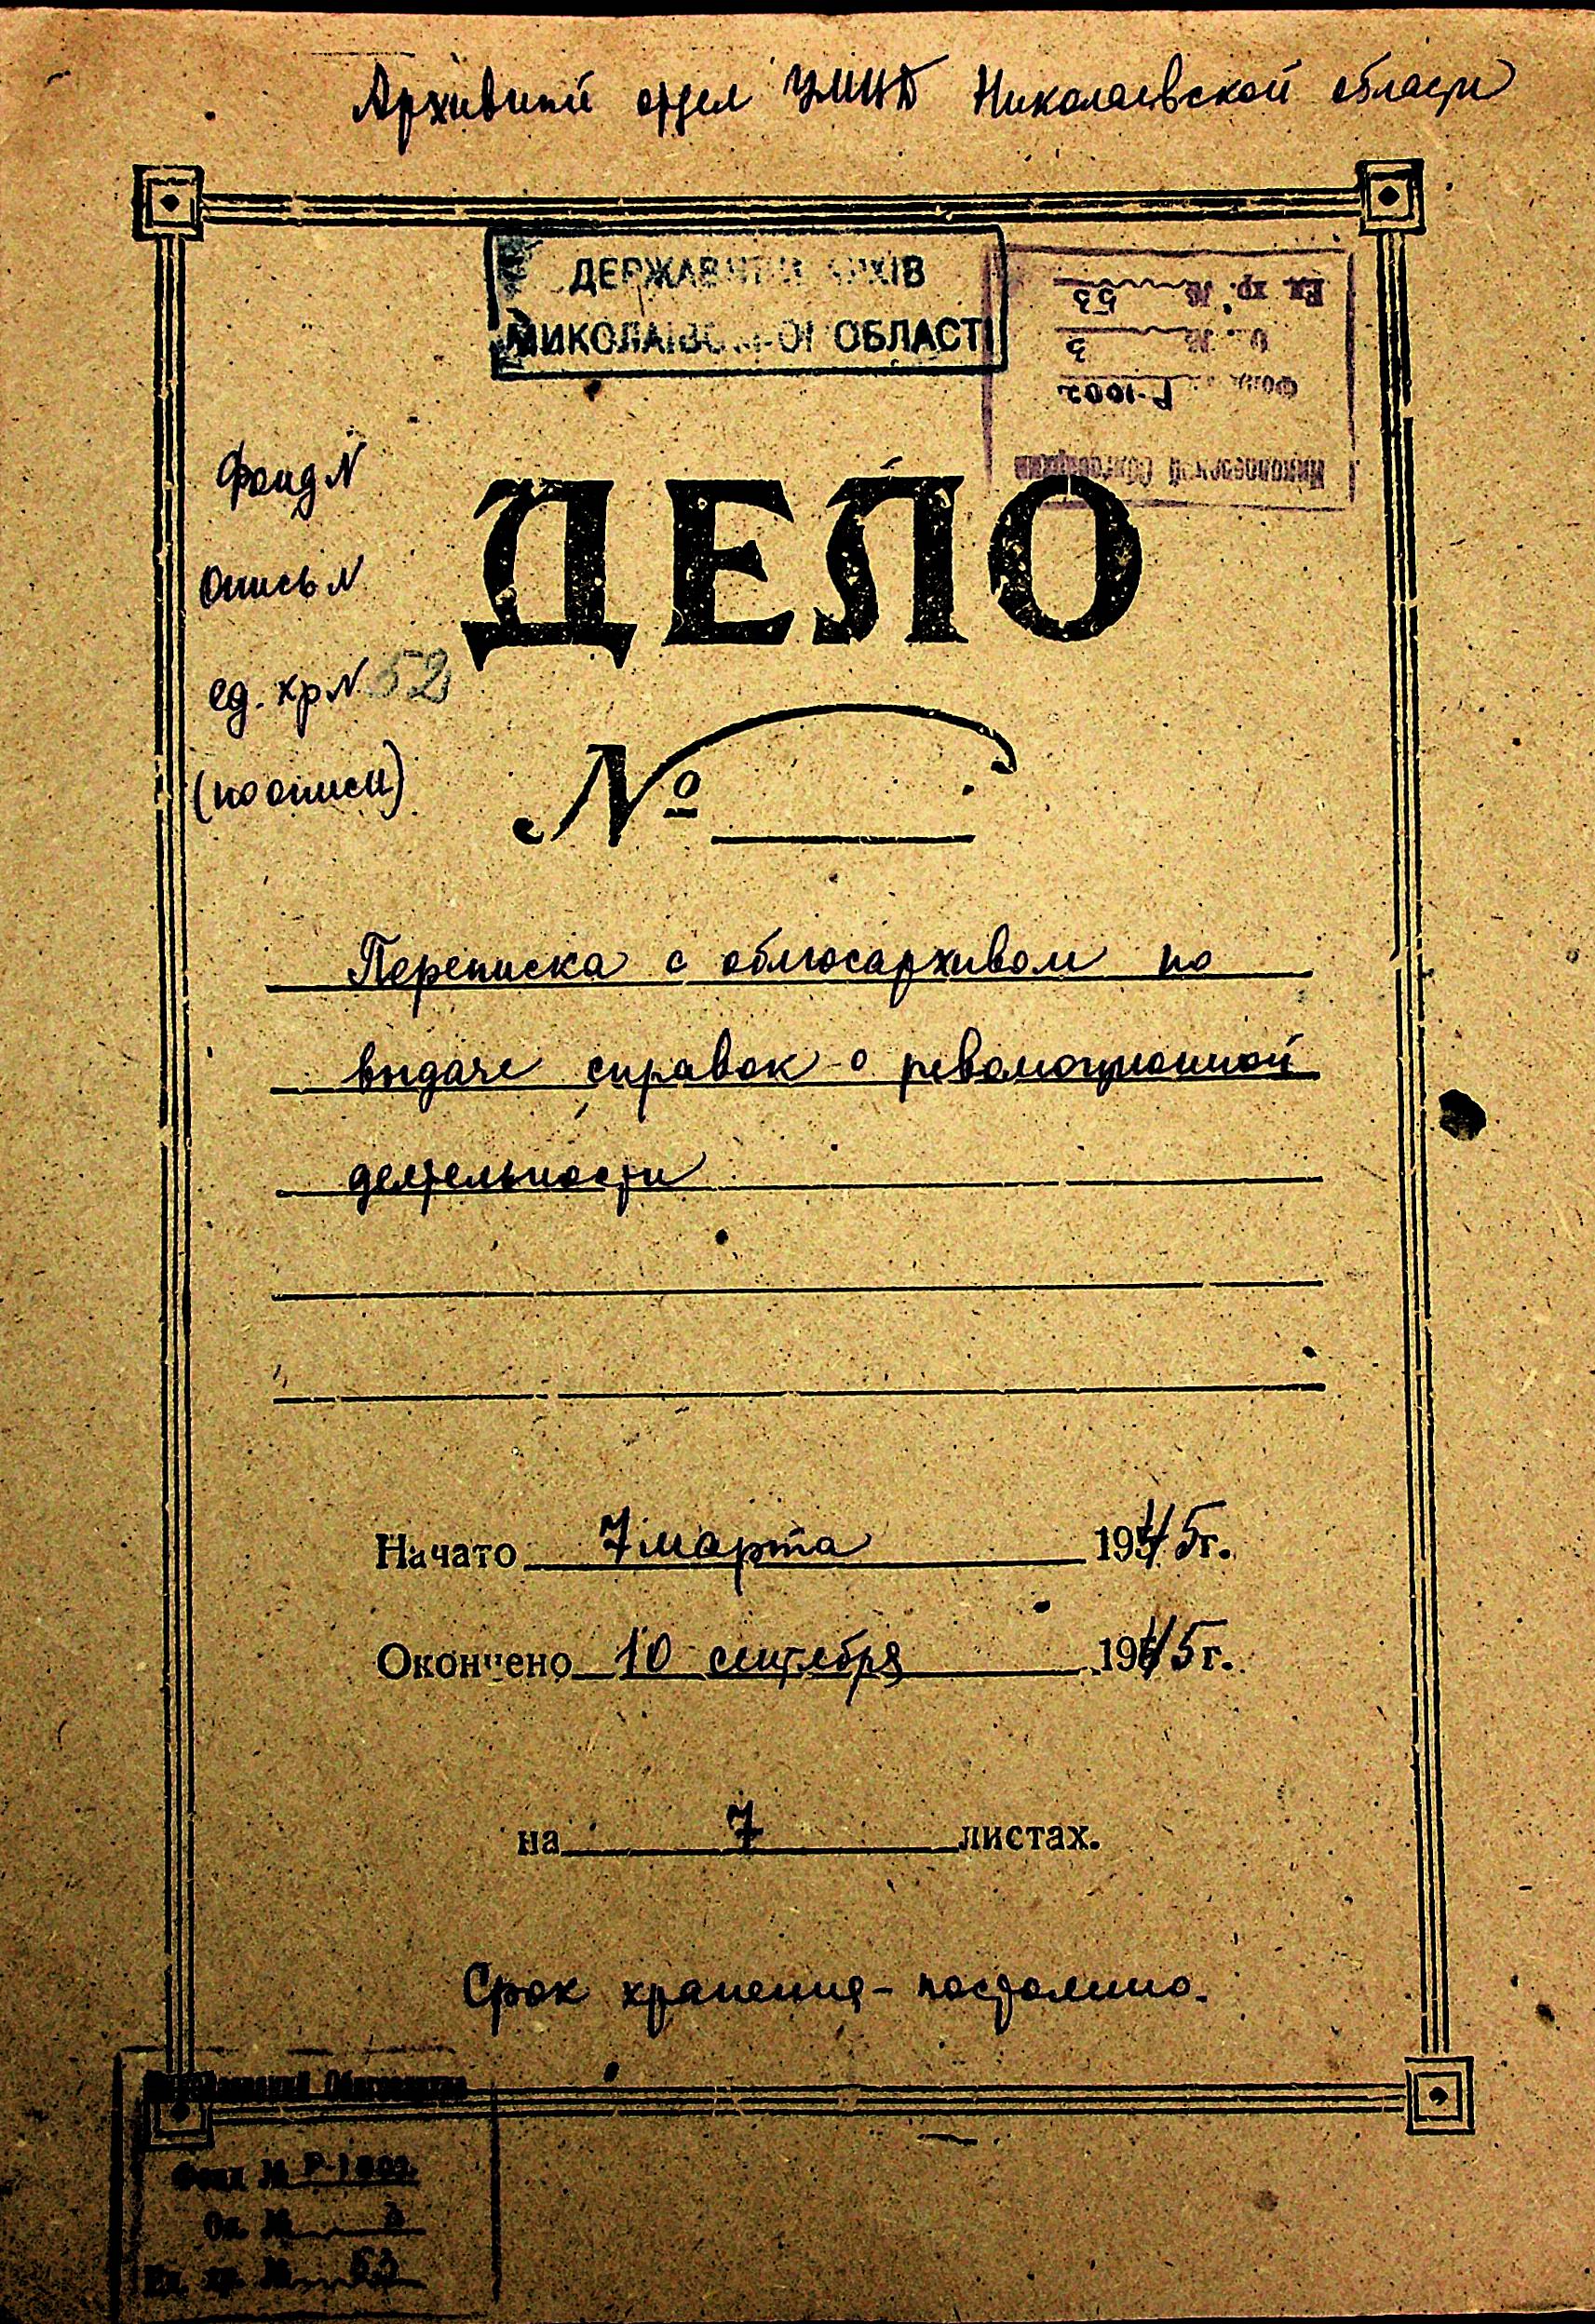 Архивный отдел УМВД Николаевской области
ДЕРЖАВНИЙ АРХІВ
МИКОЛАЇВСЬКОЇ ОБЛАСТІ
Николаевский Облгосархив
Фонд № Р-1002
Оп. № 3
Ед. хр. № 53
фонд N
опись N
ед. хр N 52
(по описи)
ДЕЛО
№
Переписка с облгосархивом по
выдаче справок о революционной
деятельности
Начато 7 марта 1945г.
Окончено 10 сентября 1945г.
на 7 листах.
Срок хранения - постоянно.
Николаевский Облгосархив
Фонд № Р-1002
Оп. № 3
Ед. хр. № 53